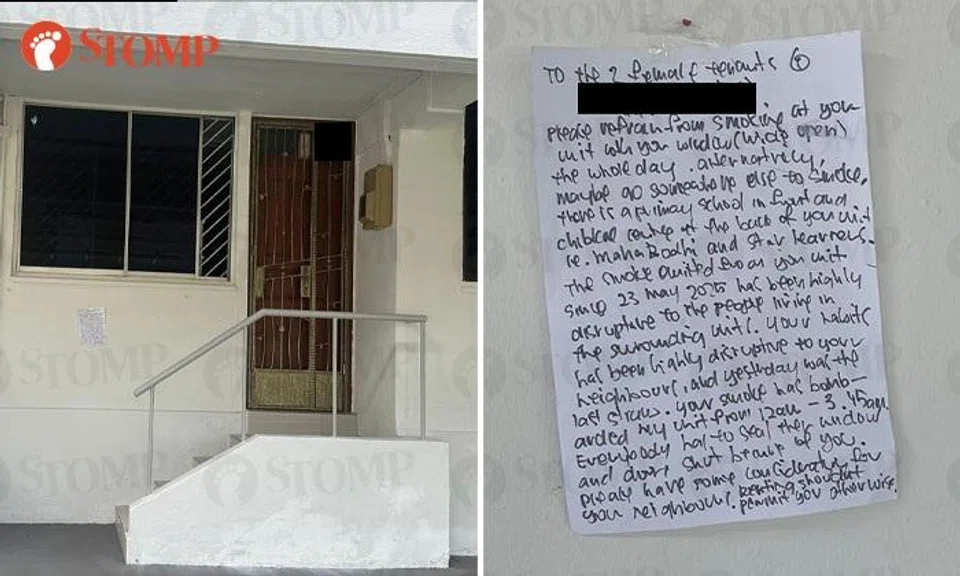 STOMP
To the 2 female tenants
please refrain from smoking at you
unit with you window (wide open)
the whole day. alternatively,
maybe go somewhere else to smoke,
there is a primary school in front and
childcare centre at the back of you unit
ie. Maha Bodhi and Star Learners.
The smoke emitted from you unit
since 23 may 2025 has been highly
disruptive to the people living in
the surrounding units. Your habits
has been highly disruptive to your
neighbours, and yesterday was the
last straw. Your smoke has bomb-
arded my unit from 12am - 3.45am.
Everybody has to seal their window
and doors shut because of you.
please have some consideration for
you neighbours. Renting shouldn't
permit you otherwise.